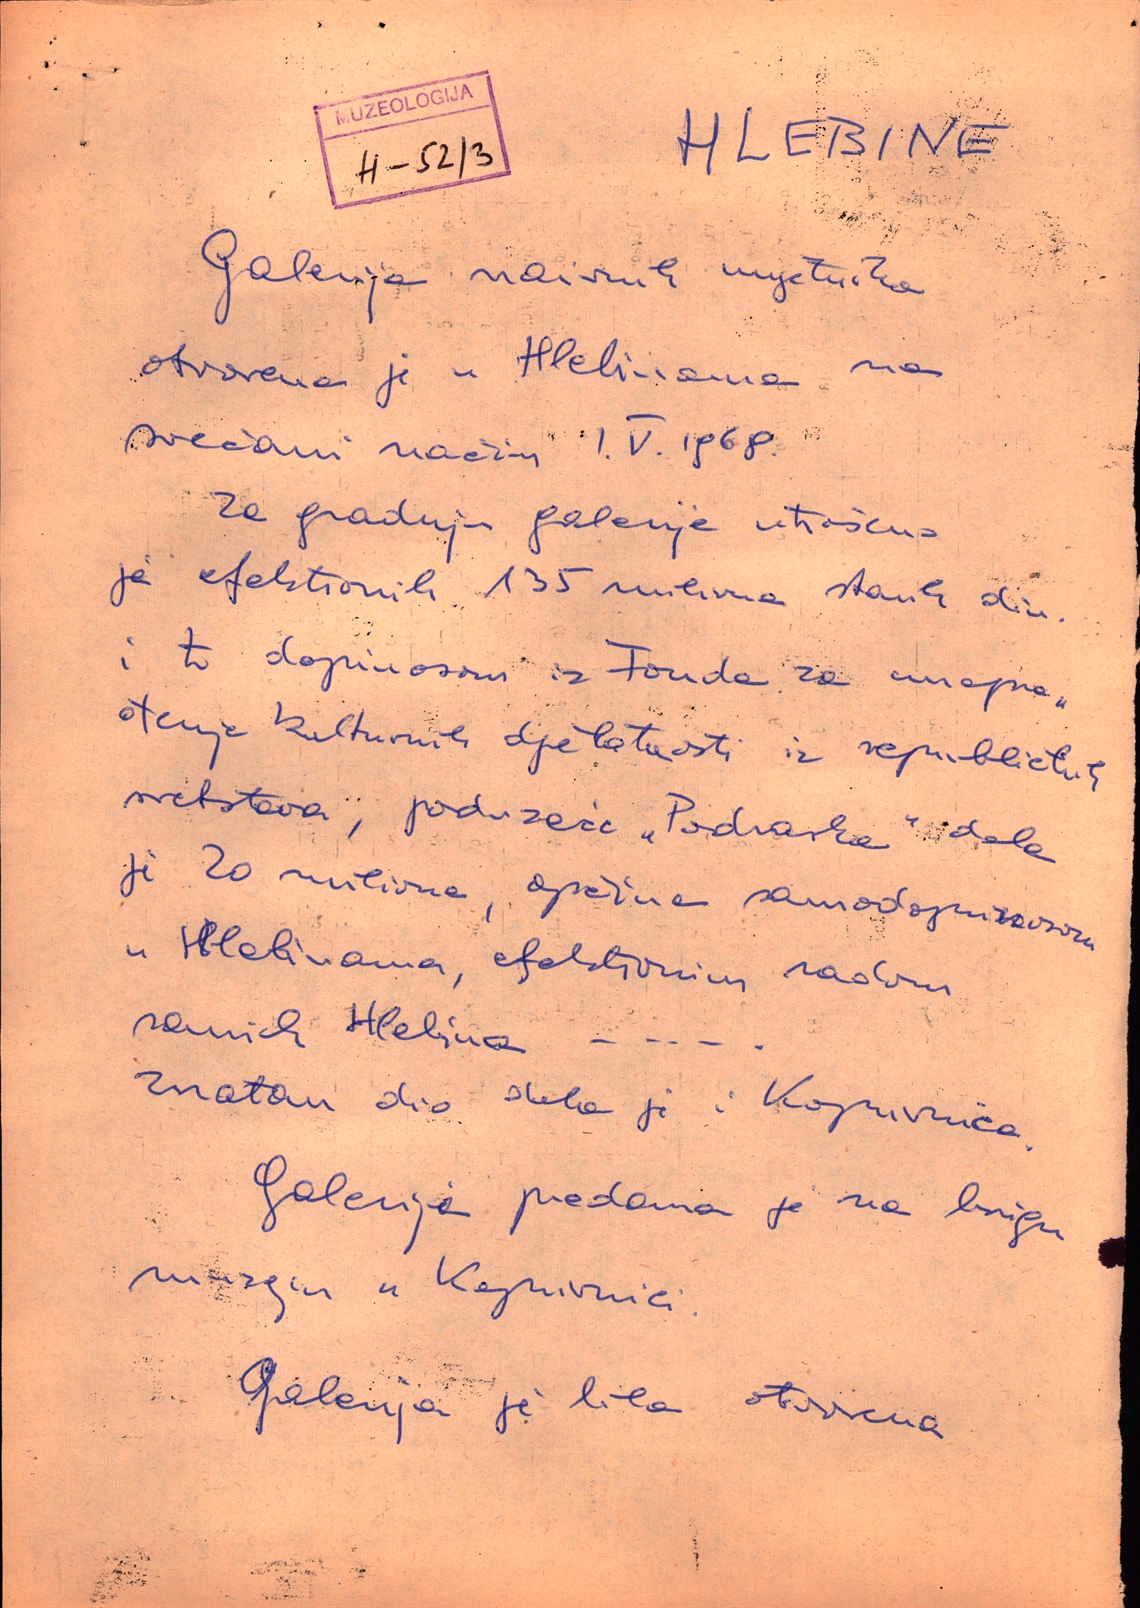 MUZEOLOGIJA
H-52/3
HLEBINE
Galerija naivnih umjetnika
otvorena je u Hlebinama na
svečani način 1. V. 1968.
Za gradnju galerije utrošeno
je efektivnih 135 miliona starih din.
i to doprinosom iz Fonda za unapre„
đenje kulturnih djelatnosti iz republičkih
sredstava, poduzeće „Podravka" dala
je 20 miliona, općina samodoprinosom
u Hlebinama, efektivnim radom
samih Hlebina - - - - .
Znatan dio dala je i Koprivnica.
Galerija predana je na brigu
muzeju u Koprivnici.
Galerija je bila otvorena